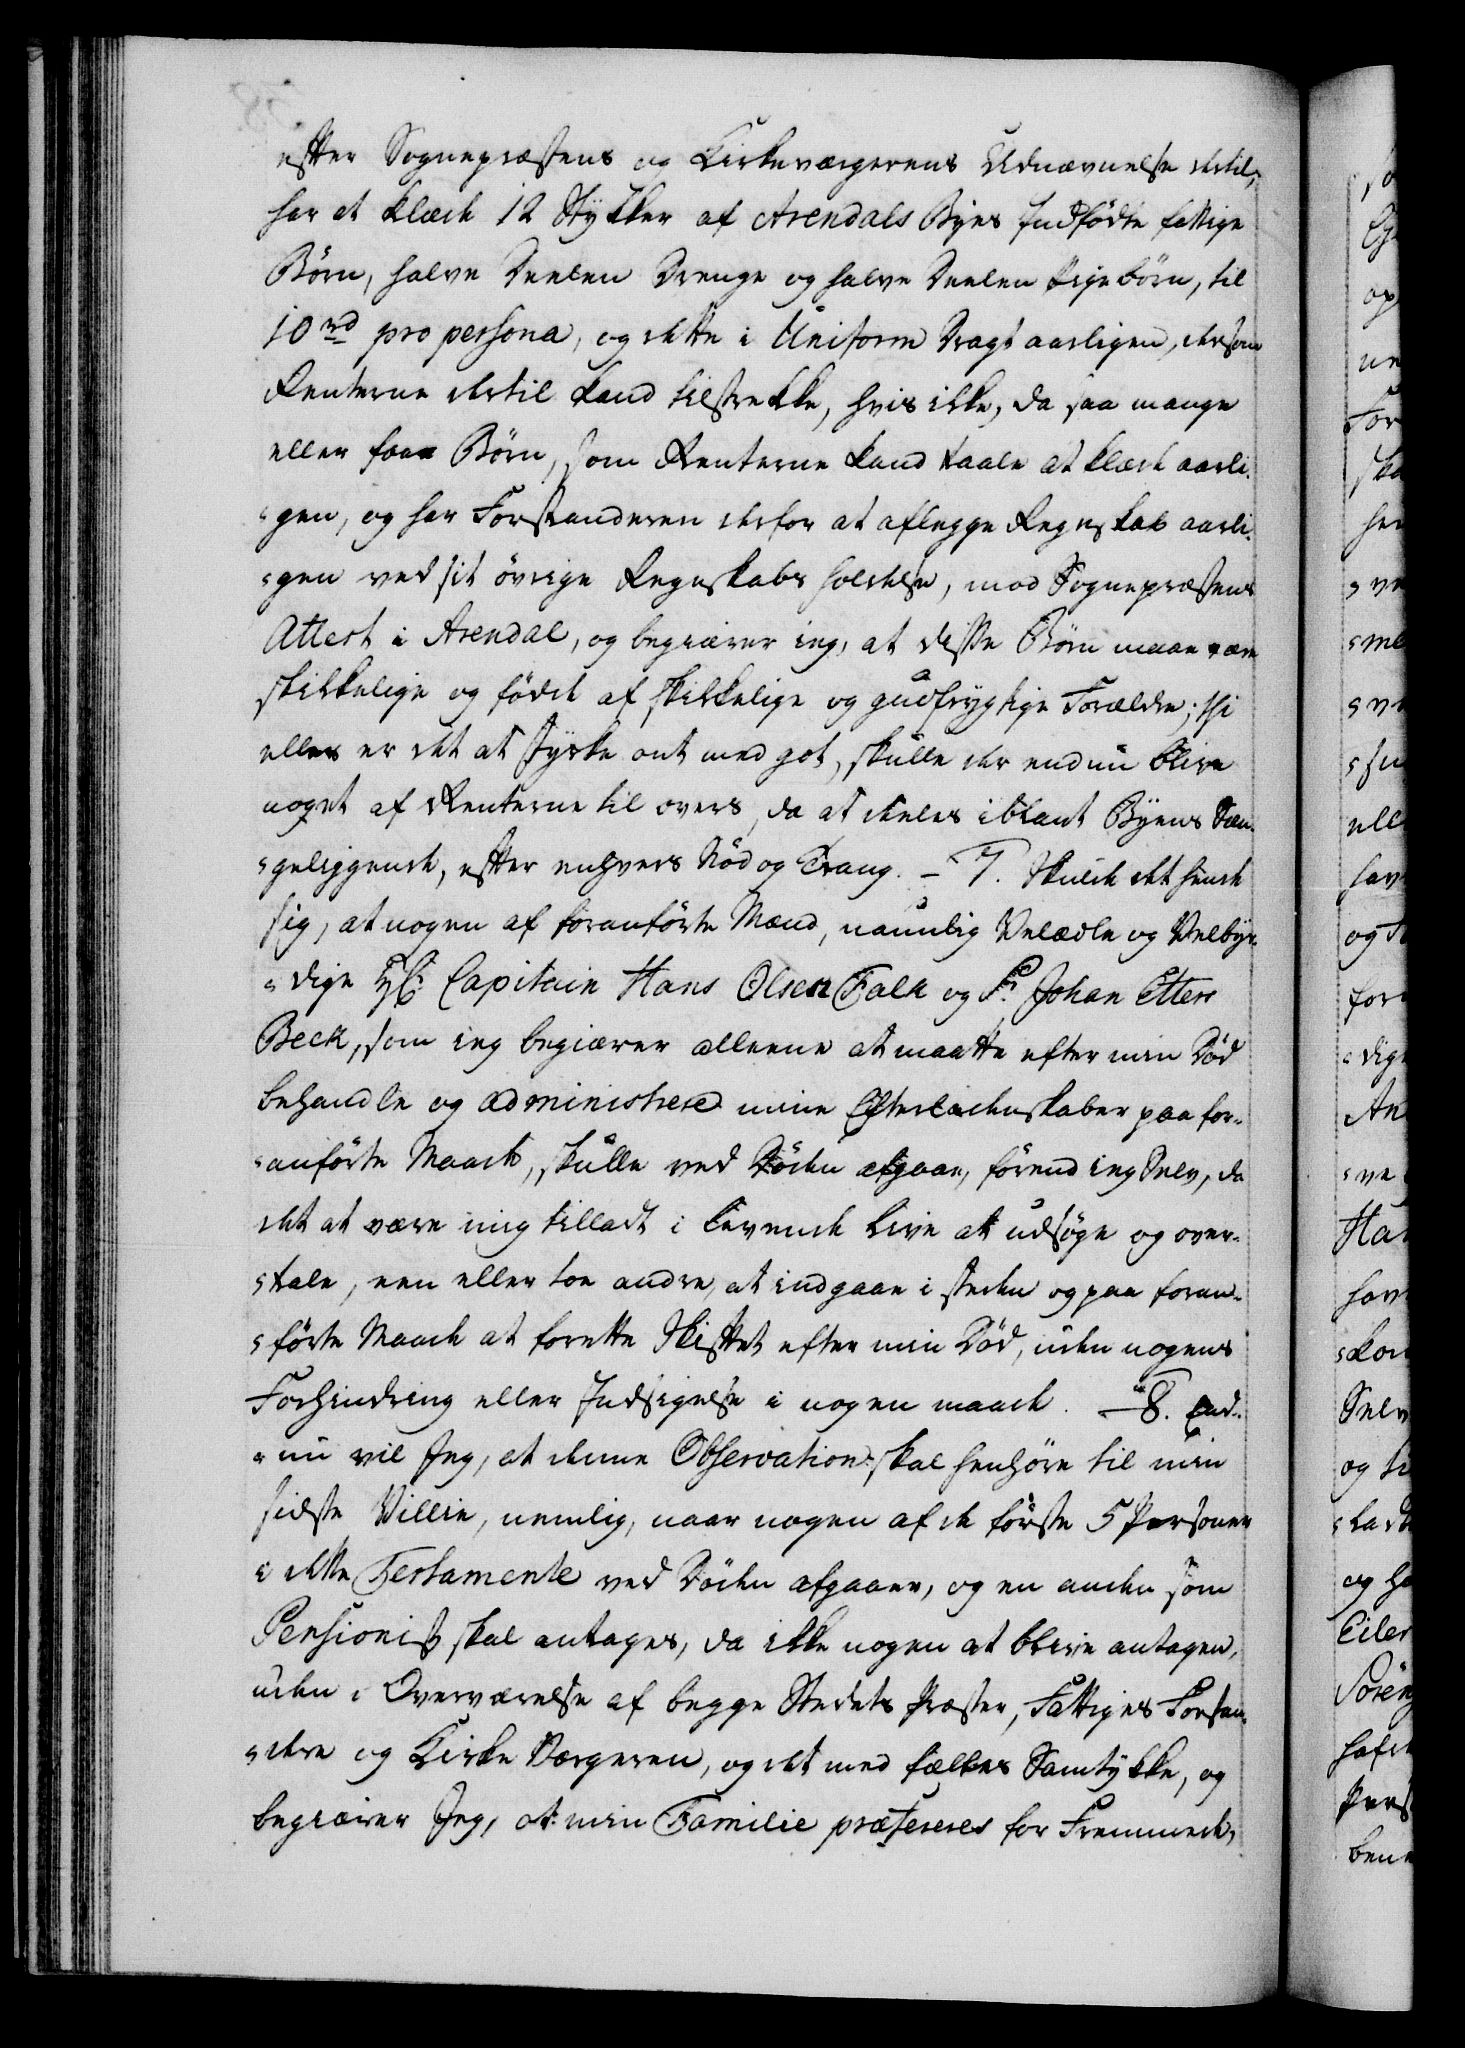 efter Sognepræstens og Kirkeværgerens Udnævnelse dertil,
har at klæde 12 Stykker af Arendals Byes Indfödte fattige
Börn, halve Deelen Drenge og halve Deelen Pigebörn, til
10 rd pro persona, og dette i Uniform Dragt aarligen, dersom
Renterne dertil kand tilstrekke, hvis ikke, da saa mange
eller faae Börn, som Renterne kand taale at klæde aarli-
gen, og har Forstanderen derfor at aflegge Regnskab aarli-
gen ved sit övrige Regnskabs holdelse, mod Sognepræstens
Attest i Arendal, og begiærer ieg, at disse Börn maae være
skikkelige og födde af skikkelige og gudfrygtige Forældre; thi
ellers er det at styrke ont med got, skulle der endnu blive
noget af Renterne til overs, da at deeles iblant Byens Sæn-
geliggende, efter enhvers Nöd og Trang. _ 7. Skulde det hende
sig, at nogen af foranförte Mænd, naunlig Velædle og Velbyr-
dige Hr: Capitain Hans Olsen Falk og Sr. Johan Etters
Beck, som ieg begiærer alleene at maatte efter min Död
behandle og administrere mine Efterladenskaber paa for-
anförte Maade, skulle ved Döden afgaae, förend ieg Selv, da
det at være mig tilladt i levende Live at udsöge og over-
tale, een eller toe andre, at indgaae i steden og paa foran-
förte Maade at forette Skiftet efter min Död, uden nogens
Forhindring eller Indsigelse i nogen maade. _ 8. End-
nu vil Jeg, at denne Observation skal henhöre til min
sidste Villie, nemlig, naar nogen af de förste 5 Personer
i dette Testamente ved Döden afgaaer, og en anden som
Pensionist skal antages, da ikke nogen at blive antagen,
uden i Overværelse af begge Stedets Præster, Fattiges Forstan-
dere og Kirke Værgeren, og det med fælles Samtykke, og
begiærer Jeg, at min Familie præfereres for Fremmede,